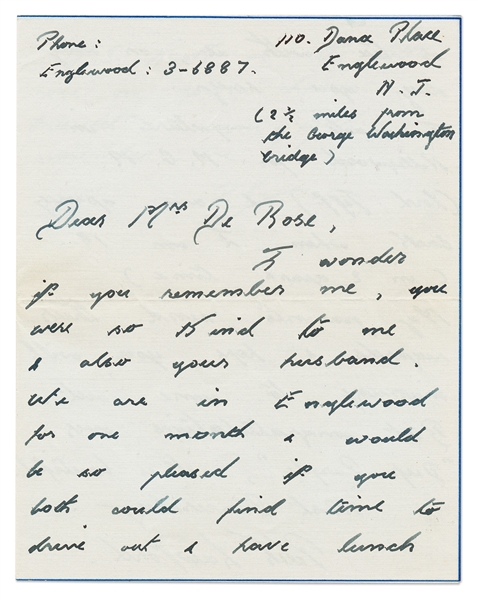 Phone:
Englewood: 3-6887.
110. Dana Place
Englewood
N. J.
(2 ½ miles from
the George Washington
bridge)
Dear Mrs De Rose,
I wonder
if you remember me, you
were so kind to me
& also your husband.
We are in Englewood
for one month & would
be so pleased if you
both could find time to
drive out & have lunch